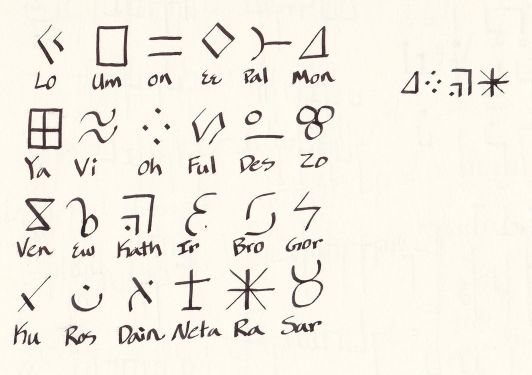 Lo Um on Ee Pal Mon
Ya Vi Oh Ful Des Zo
Ven Ew Kath Ir Bro Gor
Ku Ros Dain Neta Ra Sar